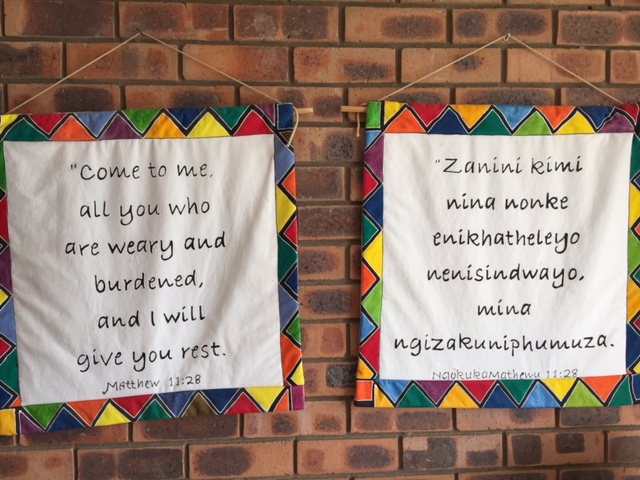 "Come to me,
all you who
are weary and
burdened,
and I will
give you rest.
Matthew 11:28
"Zanini kimi
nina nonke
enikhatheleyo
nenisindwayo,
mina
ngizakuniphumuza.
NgokukaMathewu 11:28